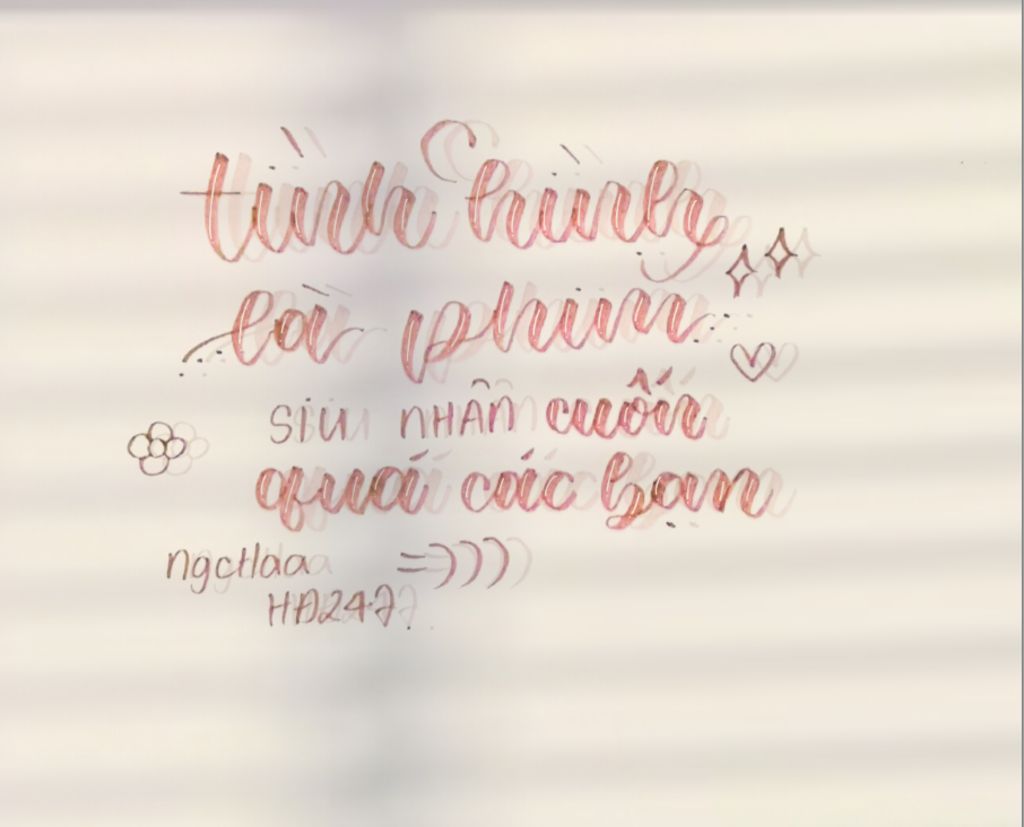 tình hình
là phim
SIÊU NHÂN cuốn
quá các bạn
ngctlaa =))))
HĐ247